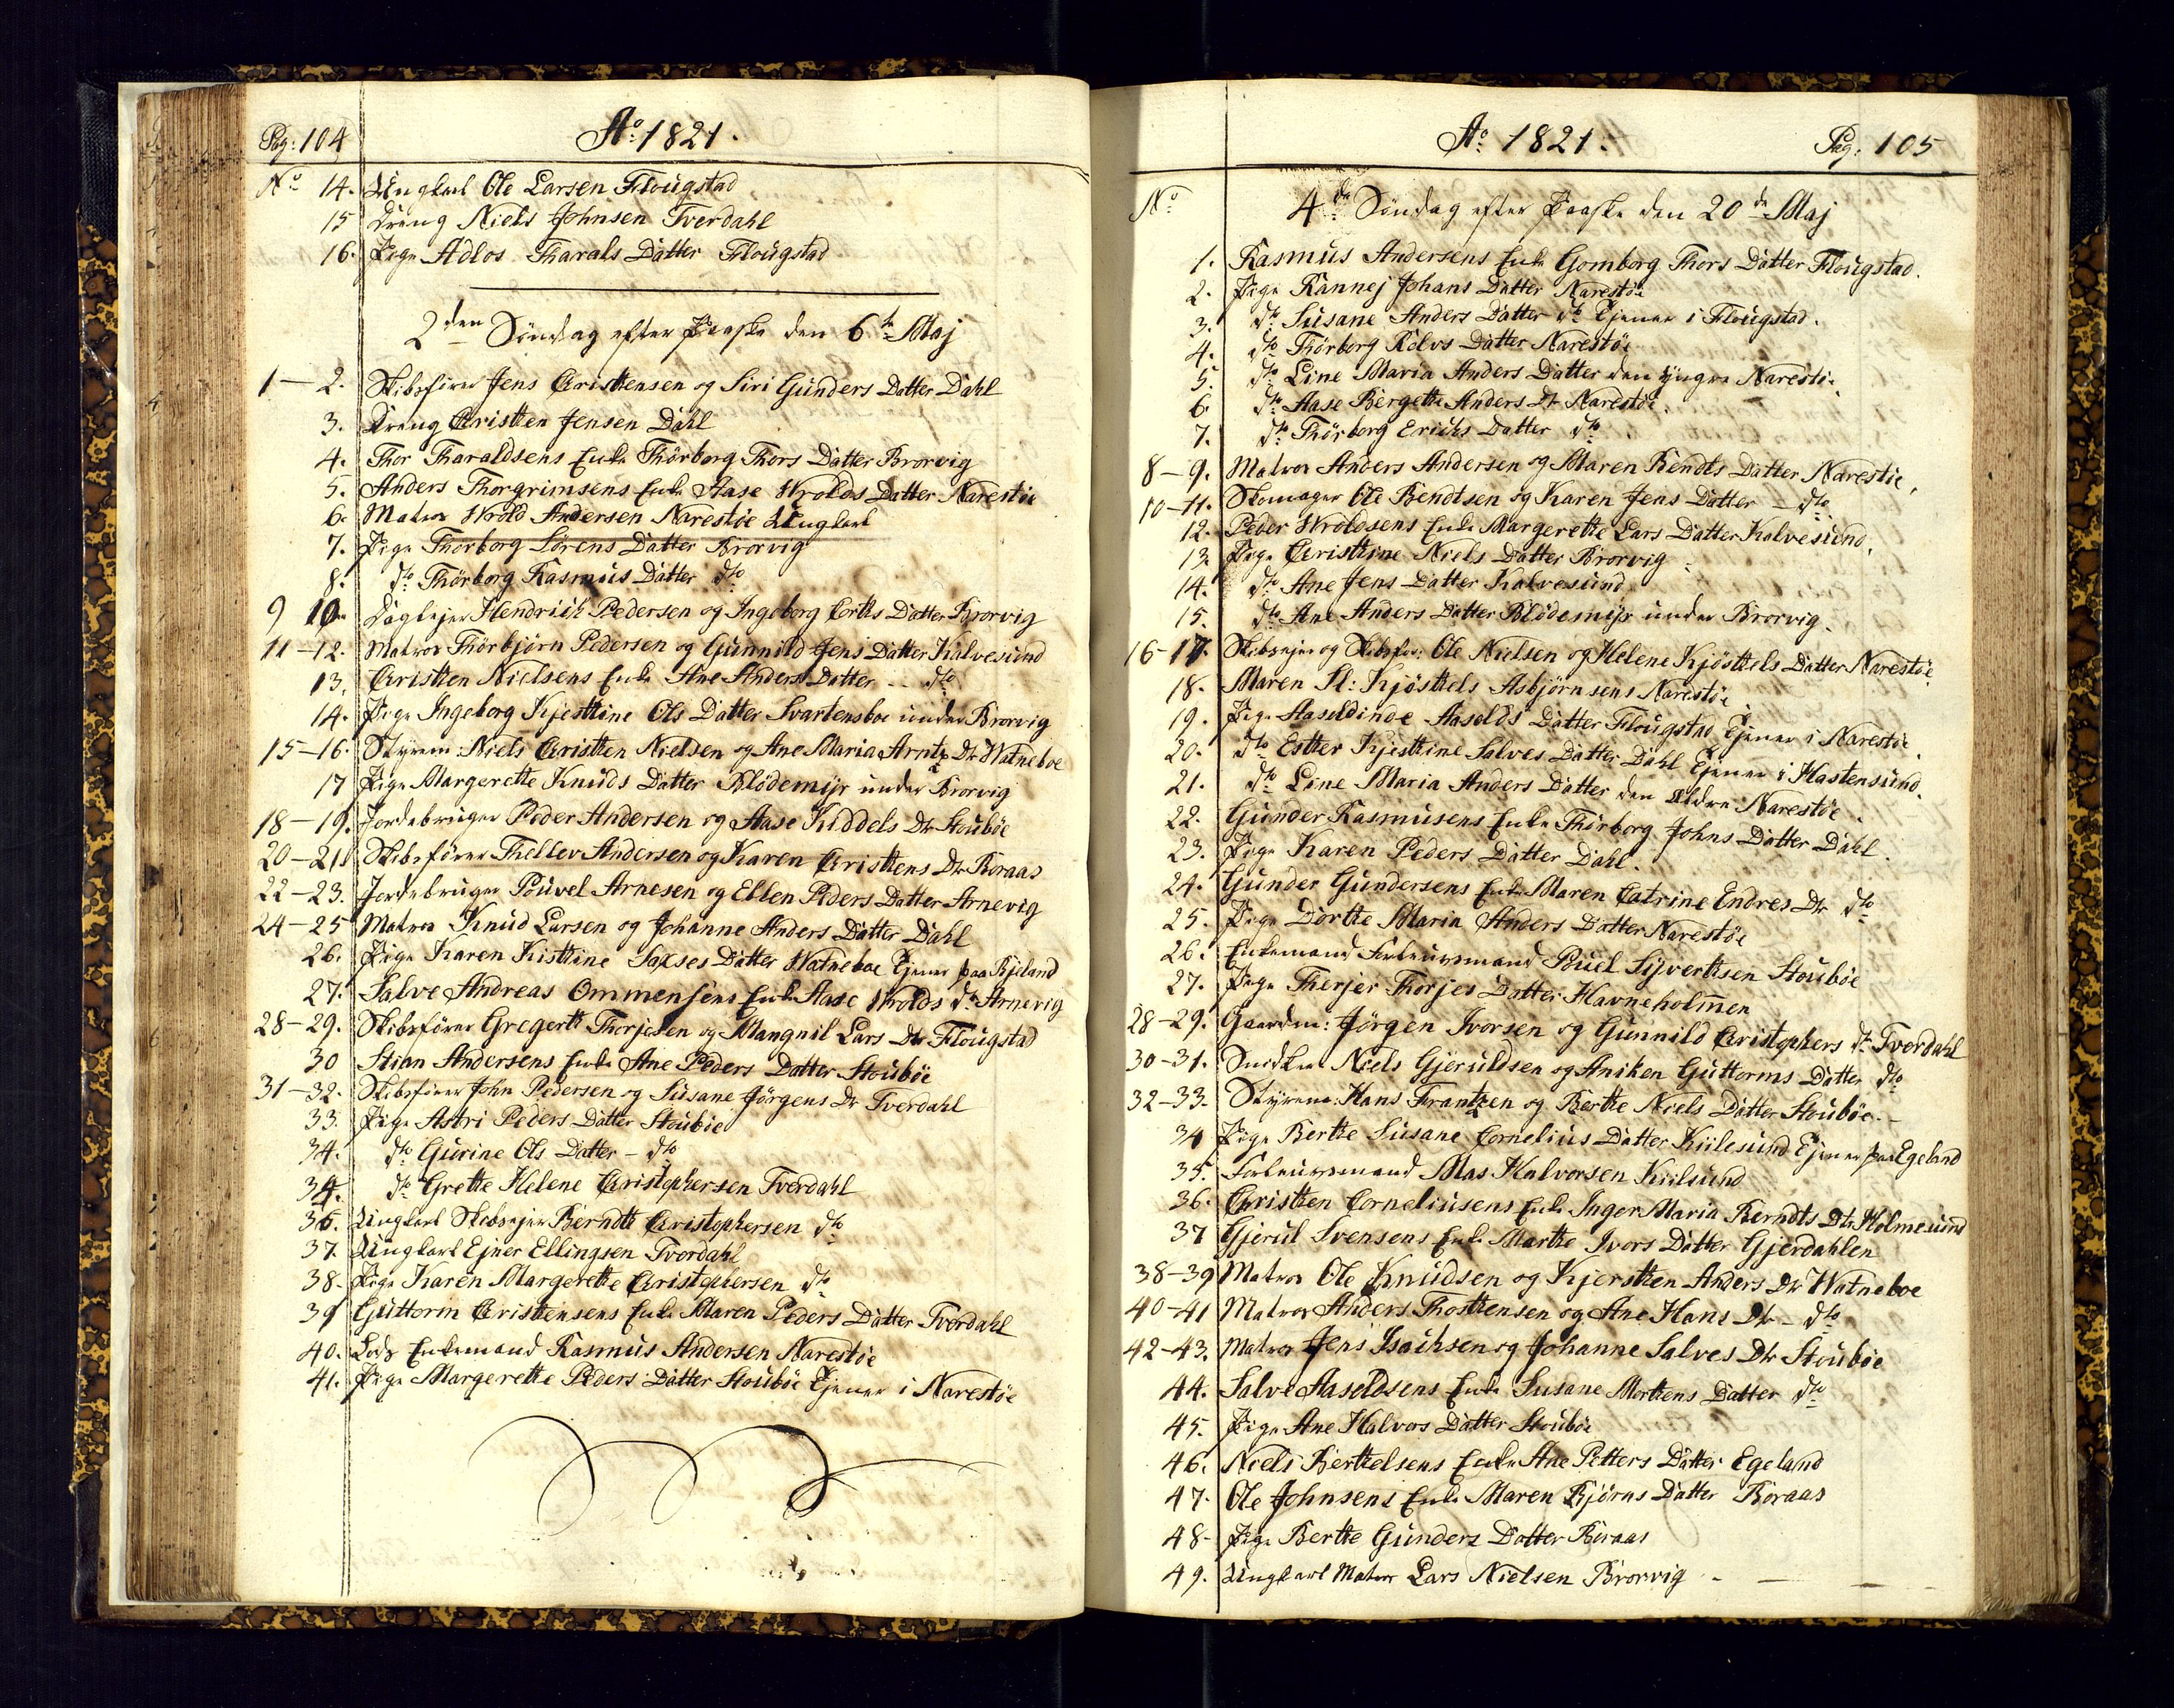 Pag: 104
Ao: 1821.
No 14. Ungkarl Ole Larsen Flougstad
15 Dreng Niels Johnsen Tverdahl
16. Pige Adlos Tharals Datter Flougstad
2den Søndag efter Paaske den 6te Maj
1 — 2. Skibsfører Jens Christensen og Siri Gunders Datter Dahl
3. Dreng Christen Jensen Dahl
4. Thor Tharaldsens Enke Thörborg Thors Datter Brorvig
5. Anders Thorgrimsens Enke Aase Wrolds Datter Narestöe
6. Matros Wrold Andersen Narestöe Ungkarl
7. Pige Thorborg Sörens Datter Brorvig
8. dto Thörborg Rasmus Datter dto
9 10. Daglejer Hendrich Pedersen og Ingeborg Corths Datter Brorvig
11—12. Matros Thörbjörn Pedersen og Gunnild Jens Datter Kalvesund
13. Christen Nielsens Enke Ane Anders Datter — dto
14. Pige Ingeborg Kjestine Ols Datter Svartensboe under Brorvig
15—16. Styrm: Niels Christen Nielsen og Ane Maria Arntz Dr Watneboe
17 Pige Margerethe Knuds Datter Blödemyr under Brorvig
18—19. Jordebruger Peder Andersen og Aase Kiddels Dtr Stouböe
20—21 Skibsfører Thellev Andersen og Karen Christens Dtr Boraas
22—23. Jordebruger Pouvel Arnesen og Ellen Peders Datter Arnevig
24—25 Matros Knud Larsen og Johanne Anders Datter Dahl
26. Pige Karen Kistine Saxses Datter Watneboe tjener paa Bjeland
27. Salve Andreas Ommensens Enke Aase Wrolds dtr Arnevig
28—29. Skibsfører Gregert Thorjesen og Mangnil Lars Dtr Flougstad
30 Stian Andersens Enke Ane Peders Datter Stouböe
31—32. Skibsfører John Pedersen og Susane Jörgens Dr Tverdahl
33. Pige Astri Peders Datter Stouböe
34. dto Gurine Ols Datter — dto
34. dto Grethe Helene Christophersen Tverdahl
36. Ungkarl Skibsejer Berndt Christophersen dto
37. Ungkarl Ejner Ellingsen Tverdahl
38. Pige Karen Margerethe Christophersen dto
39 Guttorm Christensens Enke Maren Peders Datter Tverdahl
40. Lods Enkemand Rasmus Andersen Narestöe
41. Pige Margerethe Peders Datter Stouböe tjener i Narestöe
Ao: 1821.
Pag: 105
No
4de Søndag efter Paaske den 20de Maj
1. Rasmus Andersens Enke Gomborg Thors Datter Flougstad.
2. Pige Rannej Johans Datter Narestöe
3. dto Susane Anders Datter dto tjener i Flougstad.
4. dto Thörborg Rolvs Datter Narestöe
5. dto Line Maria Anders Datter den yngre Narestöe.
6. dto Aase Bergethe Anders Dtr Narestöe.
7. dto Thörborg Erichs Datter dto.
8—9. Matros Anders Andersen og Maren Bendts Datter Narestöe,
10—11. Skomager Ole Bendtsen og Karen Jens Datter — dto
12. Peder Wroldsens Enke Margerethe Lars Datter Kalvesund.
13. Pige Christine Niels Datter Brorvig
14. dto Ane Jens Datter Kalvesund
15. dto Ane Anders Datter Blödemyr under Brorvig.
16-17. Skibsejer og Skibsfør: Ole Nielsen og Helene Kjösthels Datter Narestöe.
18. Maren Sl: Kjösthels Asbjörnsens Narestöe
19. Pige Aasoldinde Aasolds Datter Flougstad tjener i Narestöe
20. dto Esther Kjistine Salves Datter Dahl tjener i Hastensund.
21. dto Line Maria Anders Datter den Ældre Narestöe.
22. Gunder Rasmusens Enke Thörborg Johns Datter Dahl.
23. Pige Karen Peders Datter Dahl.
24. Gunder Gundersens Enke Maren Catrine Endres Dr dto
25. Pige Dorthe Maria Anders Datter Narestöe
26. Enkemand Forlougsmand Buel Syvertsen Stouböe
27. Pige Therjer Thorjes Datter Havneholmen
28—29. Gaardm: Jörgen Ivorsen og Gunnild Christophers dtr Tverdahl
30—31. Snidker Niels Gjeruldsen og Aniken Guttorms Datter dto
32—33. Styrm: Hans Frantzen og Berthe Niels Datter Stouböe.
34 Pige Berthe Susane Cornelius Datter Kiilesund tjener paa Egeland
35. Forlougsmand Mas Halvorsen Kiilsund
36. Christen Corneliusens Enke Inger Maria Berndts Dtr Holmesund
37 Gjerul Svensens Enke Marthe Ivors Datter Gjerdahlen
38—39 Matros Ole Knudsen og Kjersthen Anders Dr Watneboe
40—41 Matros Anders Thosthensen og Ane Hans Dtr — dto
42—43. Matros Jens Isachsen og Johanne Salves Dtr Stouböe
44. Salve Aasoldsens Enke Susane Morthens Datter dto
45. Pige Ane Halvors Datter Stouböe
46. Niels Berthelsens Enke Ane Petters Datter Egeland
47. Ole Johnsens Enke Maren Björns Datter Boraas
48. Pige Berthe Gunders Datter Boraas
49. Ungkarl Matros Lars Nielsen Brorvig